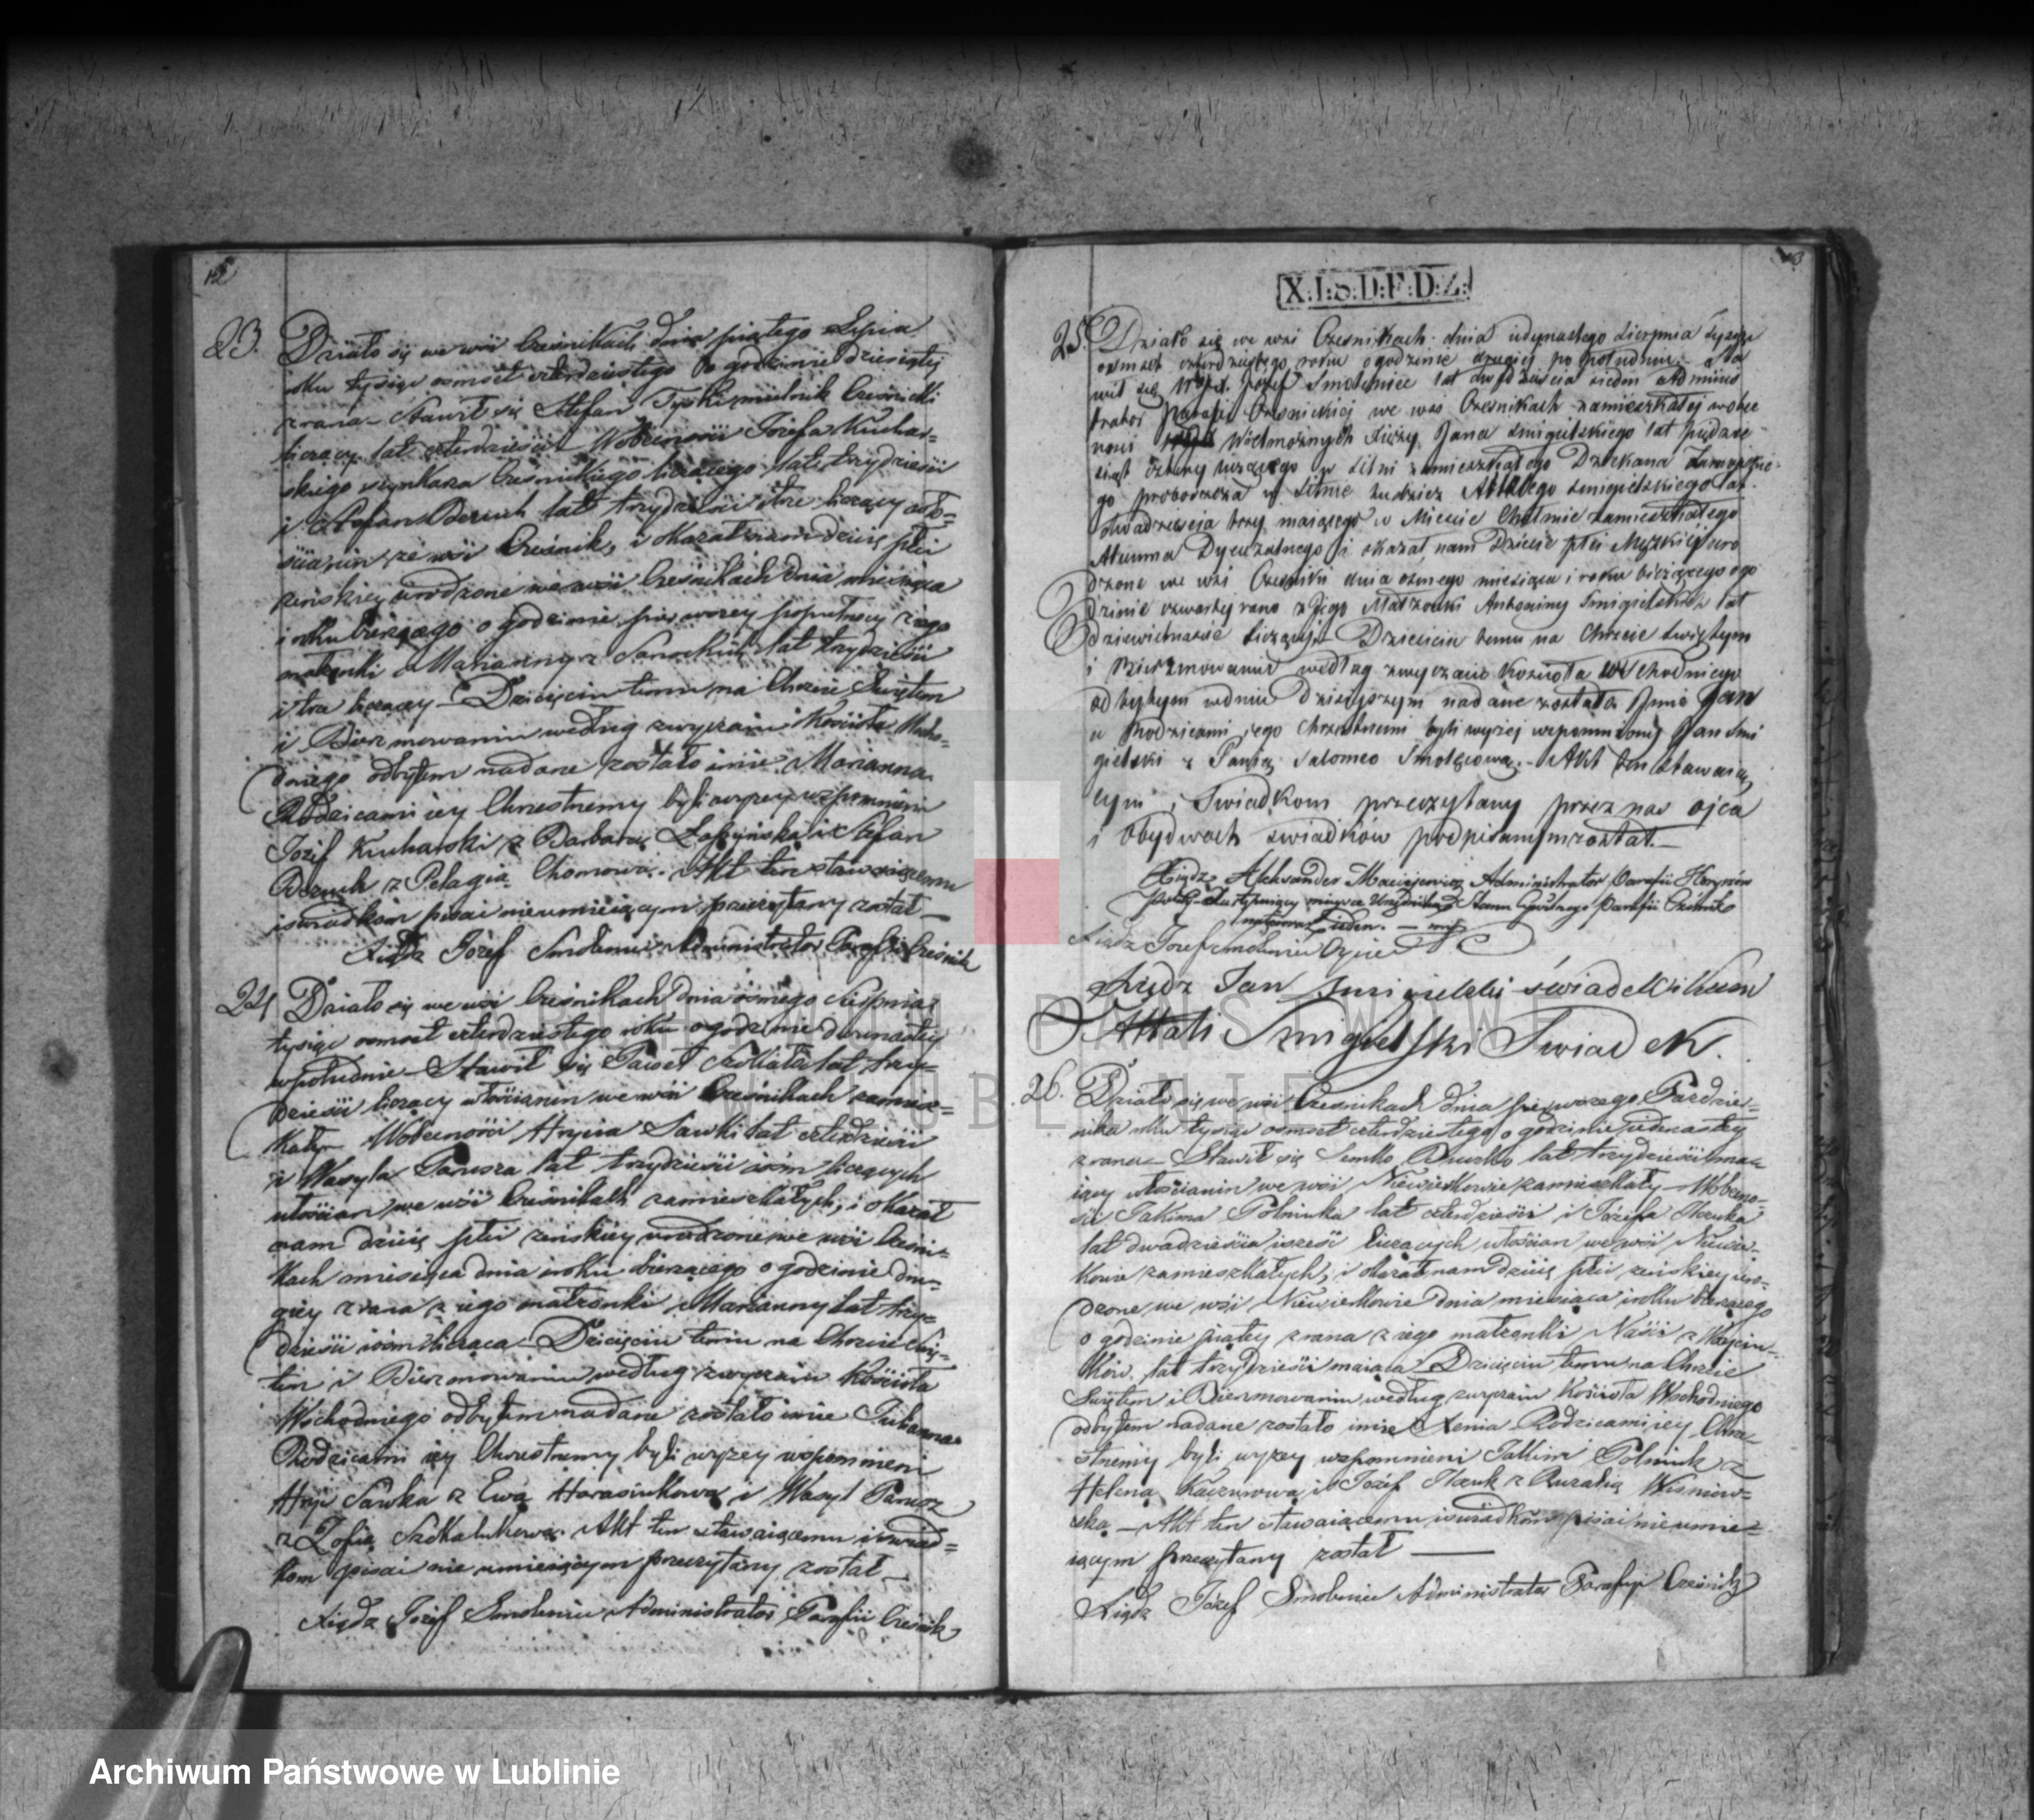 12
23. Działo się we wsi Cześnikach dnia piątego Lipca
roku tysiąc osmset czterdziestego o godzinie dziesiątej
z rana Stawił się Stefan Tyski mielnik Cześnicki
liczący lat czterdzieści Wobecności Józefa Kuchar=
skiego szynkarza Cześnickiego liczącego lat trzydzieści
i Stefan lat trzydzieści i trzy liczący wło=
ścianin ze wsi Cześnik, i okazał nam dziecię płci
żeńskiey urodzone we wsi Cześnikach dnia miesiąca
i roku bieżącego o godzinie pierwszey popołnocy z iego
małżonki Marianny z Sanockich lat trzydzieści
i trzy liczący Dziecięciu temu na Chrzcie Świętem
i Bierzmowaniu według zwyczaiu Kościoła Wscho-
dniego odbytem nadane zostało imie Marianna
Rodzicami iey Chrzestnemy byli wyzey wspomnieni
Józef Kucharski z Barbarą i Stefan
z Pelagią Chomową. Akt ten stawaiącemu
i świadkom pisać nieumieiącym przeczytany został
Xiądz Józef Smoleniec Administrator Parafii Cześnik
24 Działo się we wsi Cześnikach dnia osmego Sierpnia
tysiąc osmset czterdziestego roku o godzinie dwunastey
w południe Stawił się Paweł lat trzy=
dzieści liczący włościanin we wsi Cześnikach zamiesz=
kały Wobecności Hrycia Sawki lat czterdzieści
i Wasyla Panasa lat trzydzieści ośm liczących
włościan we wsi Cześnikach zamieszkałych, i okazał
nam dziecię płci żeńskiey urodzone we wsi Cześni=
kach miesiąca dnia i roku bieżącego o godzinie dru=
giey z rana z iego małżonki Marianny lat trzy=
dzieści ośm liczącą Dziecięciu temu na Chrzcie Świę=
tem i Bierzmowaniu według zwyczaiu Kościoła
Wschodniego odbytem nadane zostało imie Julianna
Rodzicami iey Chrzestnemy byli wyzey wspomnieni
Hryć Sawka z Ewą Harasiukową i Wasyl
z Zofią Akt ten stawaiącemu i świad=
kom pisać nie umieiącym przeczytany został
Xiądz Józef Smoleniec Administrator Parafii Cześnik
13
X.I.S.D.F.D.Z.
25. Działo się we wsi Czesnikach dnia iedynastego Sierpnia tysząc
osmset czterdziestego roku o godzinie drugiej po południu Sta
wił się Józef Smoleniec lat dwadzieścia siedm Adminis
trator Parafii Czesnickiej we wsi Czesnikach zamieszkałej wobec
ności Wielmożnych Xięży Jana Śmigielskiego lat pięćdzie
siąt cztery mającego w Sitni zamieszkałego Dziekana Zamoyskie-
go proboszcza w Sitnie tudzież Attalego Śmigielskiego lat
dwadzieścia trzy maiącego w Mieście Chełmie zamieszkałego
Alumna Dyecezalnego i okazał nam Dziecie płci Męzkiej uro
dzone we wsi Czesniki dnia osmego miesiąca i roku bieżącego ogo
dzinie czwartej rano z Jego Małżonki Antoniny Śmigielskich lat
dziewietnaście liczącej Dziecieciu temu na Chrzcie Świętym
i Bierzmowanie według zwyczaiu Kościoła Wschodniego
odbytym w dniu dzisiejszym nadane zostało Jmie Jan
a Rodzicami jego Chrzestnemi byli wyzej wspomniony Jan Śmi
gielski z Panią Salomeo Smolęcową. Akt ten stawaią
cym i Świadkom przeczytany przez nas ojca
i Obydwoch swiadków podpisanym został.
Xiądz Aleksander Maciejewicz Administrator Parafii Horyszów
Polski Zastępujący mieysce Urzędnika Stanu Cywilnego Parafii Cześniki
Xiądz Józef Smoleniec Oyciec
Xiądz Jan Śmigielski świadek i kum
Attali Śmigielski Swiadek.
26. Działo się we wsi Cześnikach dnia pierwszego Pazdzier=
nika roku tysiąc osmset czterdziestego o godzinie iedenastey
z rana Stawił się Semko lat trzydzieści ma=
iący włościanin we wsi Niewirkowie zamieszkały Wobecno=
ści Jakima Polniuka lat czterdzieści i Józefa
lat dwadzieścia i sześć liczących włościan we wsi Niewir=
kowie zamieszkałych, i okazał nam dziecię płci żeńskiey uro=
dzone we wsi Niewirkowie dnia miesiąca i roku bieżącego
o godzinie piątey z rana z iego małżonki Naści z
lat trzydzieści maiącą Dziecięciu temu na Chrzcie
Świętem i Bierzmowaniu według zwyczaiu Kościoła Wschodniego
odbytem nadane zostało imie Xenia Rodzicami iey Chrze=
stnemy byli wyzey wspomnieni Jakim Polniuk z
Heleną i Józef z Rozalią Wisniew=
ską Akt ten stawaiącemu i świadkom pisać nie umie=
iącym przeczytany został
Xiądz Józef Smoleniec Administrator Parafii Cześnik
ARCHIWUM PAŃSTWOWE
W LUBLINIE
Archiwum Państwowe w Lublinie